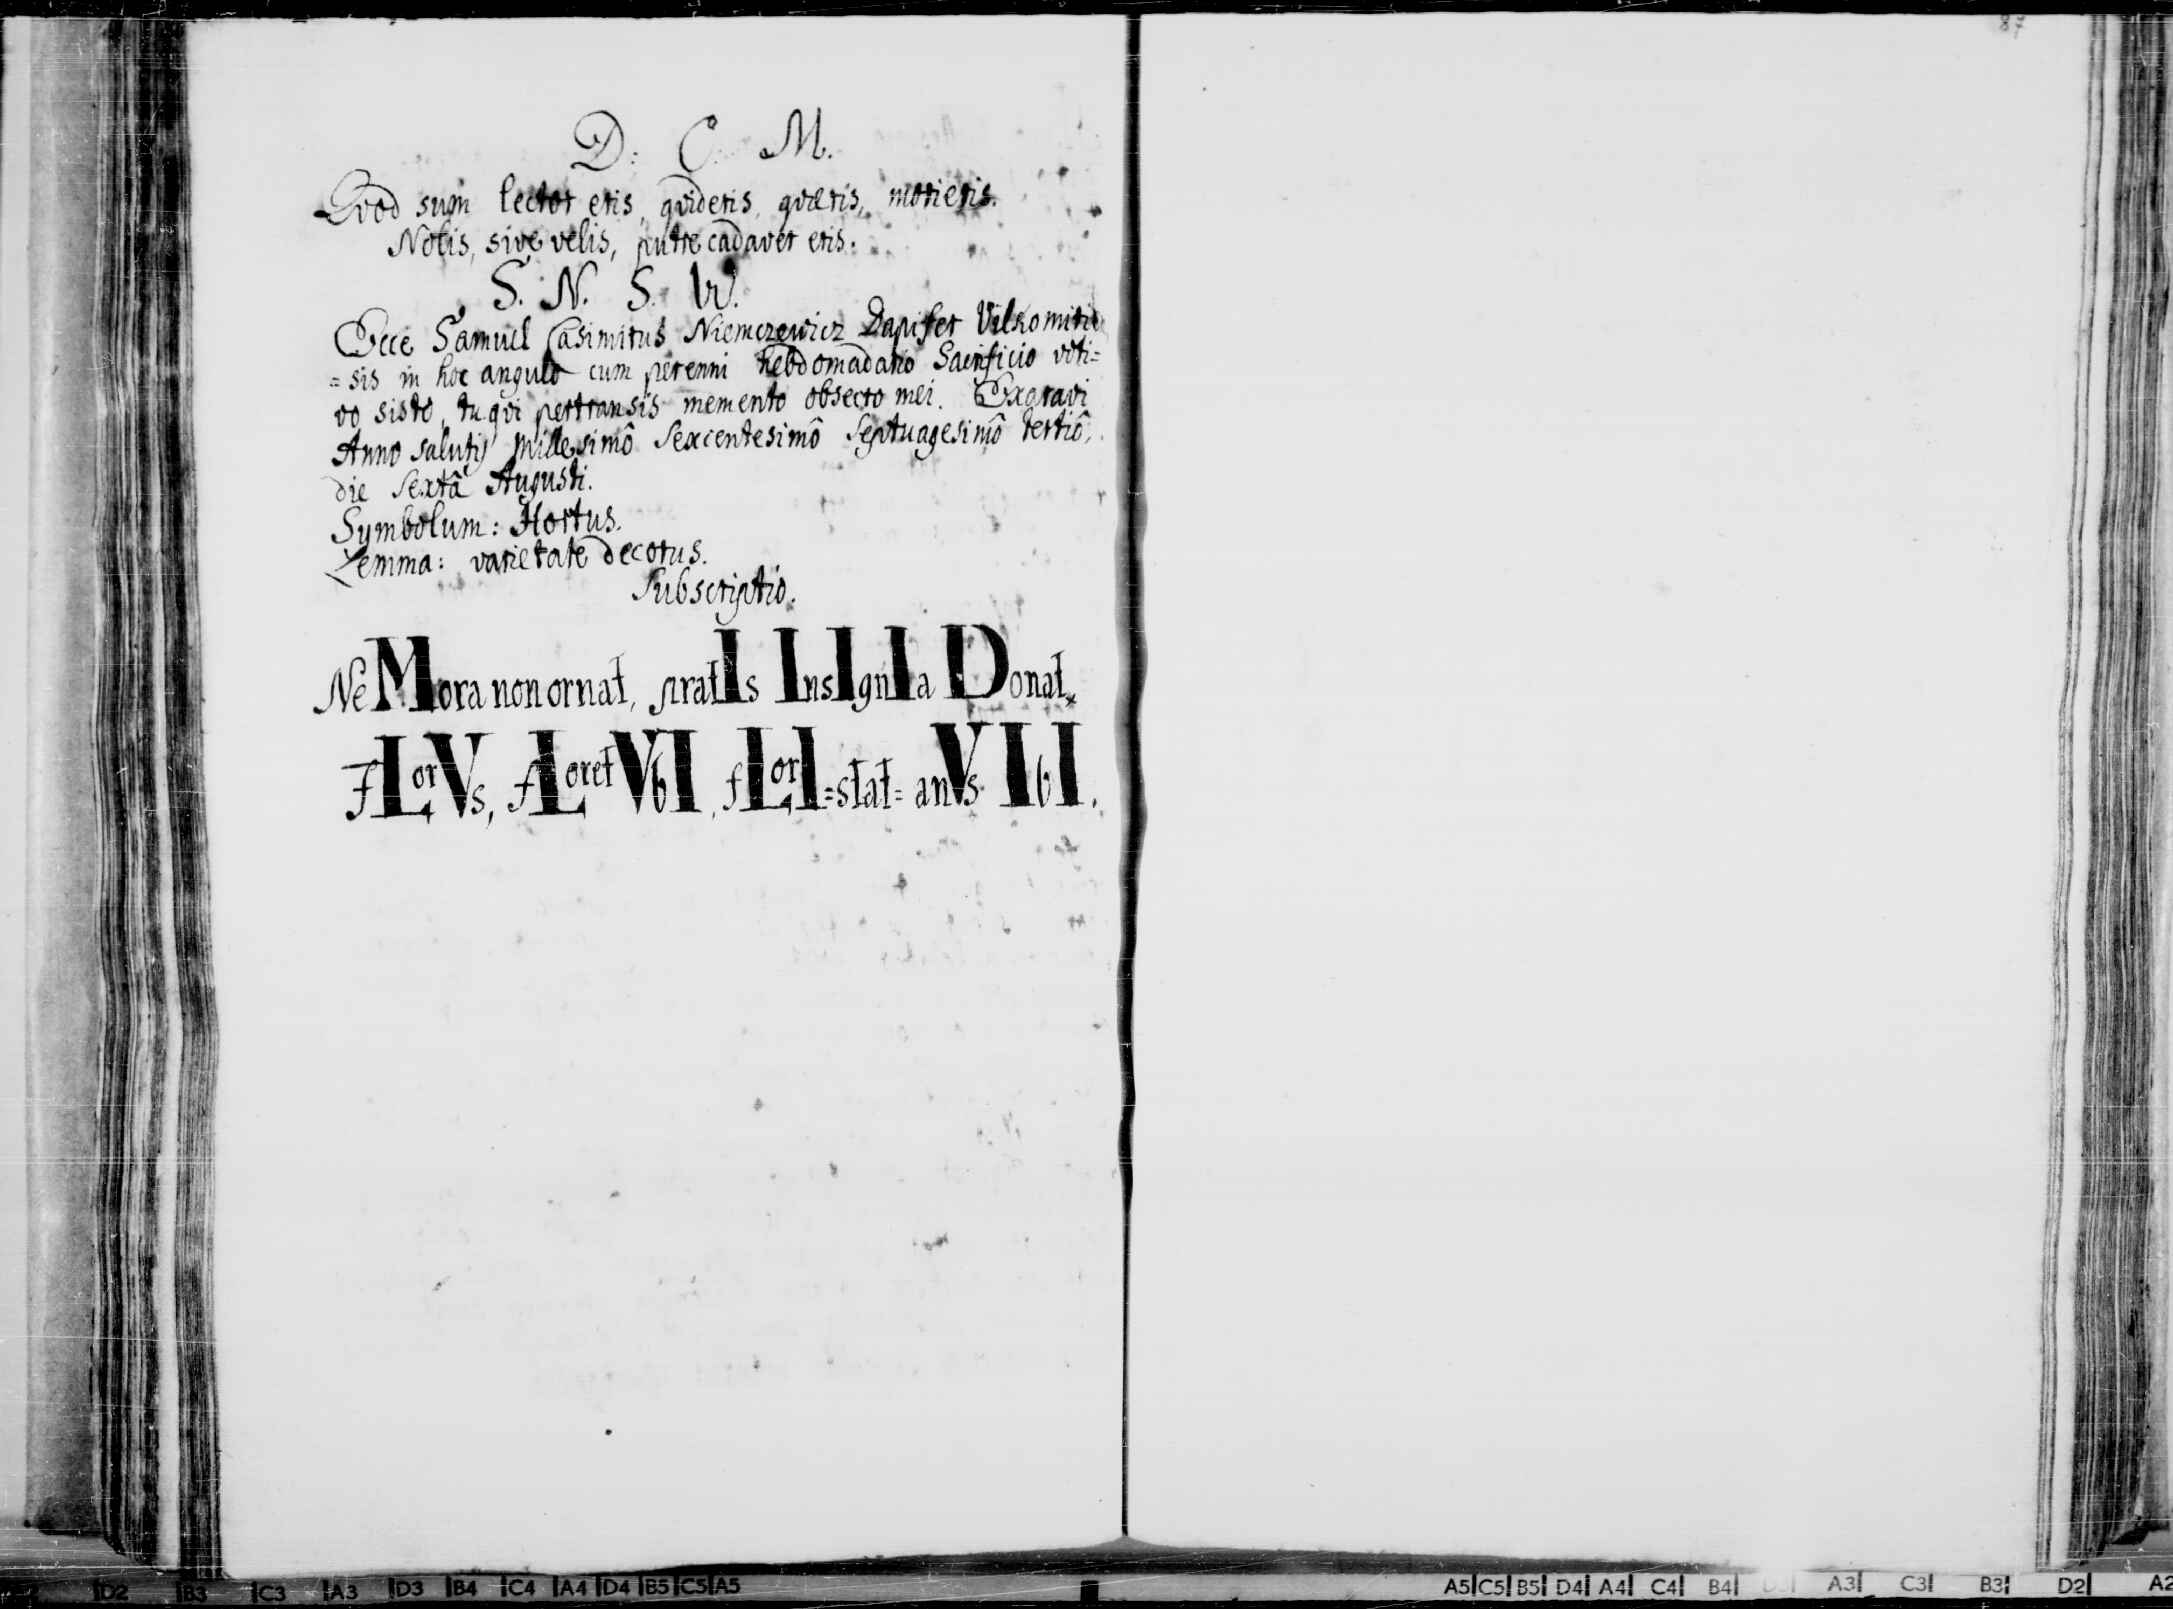 87
D. C. M.
Qvod sum lector eris, qvideris, qværis, morieris.
Nolis, sive velis, putre cadaver eris.
S. N. S. W.
Ecce Samuel Casimirus Niemczewicz Dapifer Vilkomiri
= sis in hoc angulo cum perenni hebdomadario Sacrificio voti=
vo sisto, tu qvi pertransis memento obsecro mei. Exaravi
Anno salutis Millesimô Sexcentesimô Septuagesimô tertiô,
die Sextâ Augusti.
Symbolum: Hortus.
Lemma: varietate decorus.
Subscriptio.
NeMora non ornat, pratIs InsIgnIa Donat,
FLorVs, fLoret VbI, fLorI=stat= anVs IbI.
D2 B3 C3 A3 D3 B4 C4 A4 D4 B5 C5 A5
A5 C5 B5 D4 A4 C4 B4 D3 A3 C3 B3 D2 A2